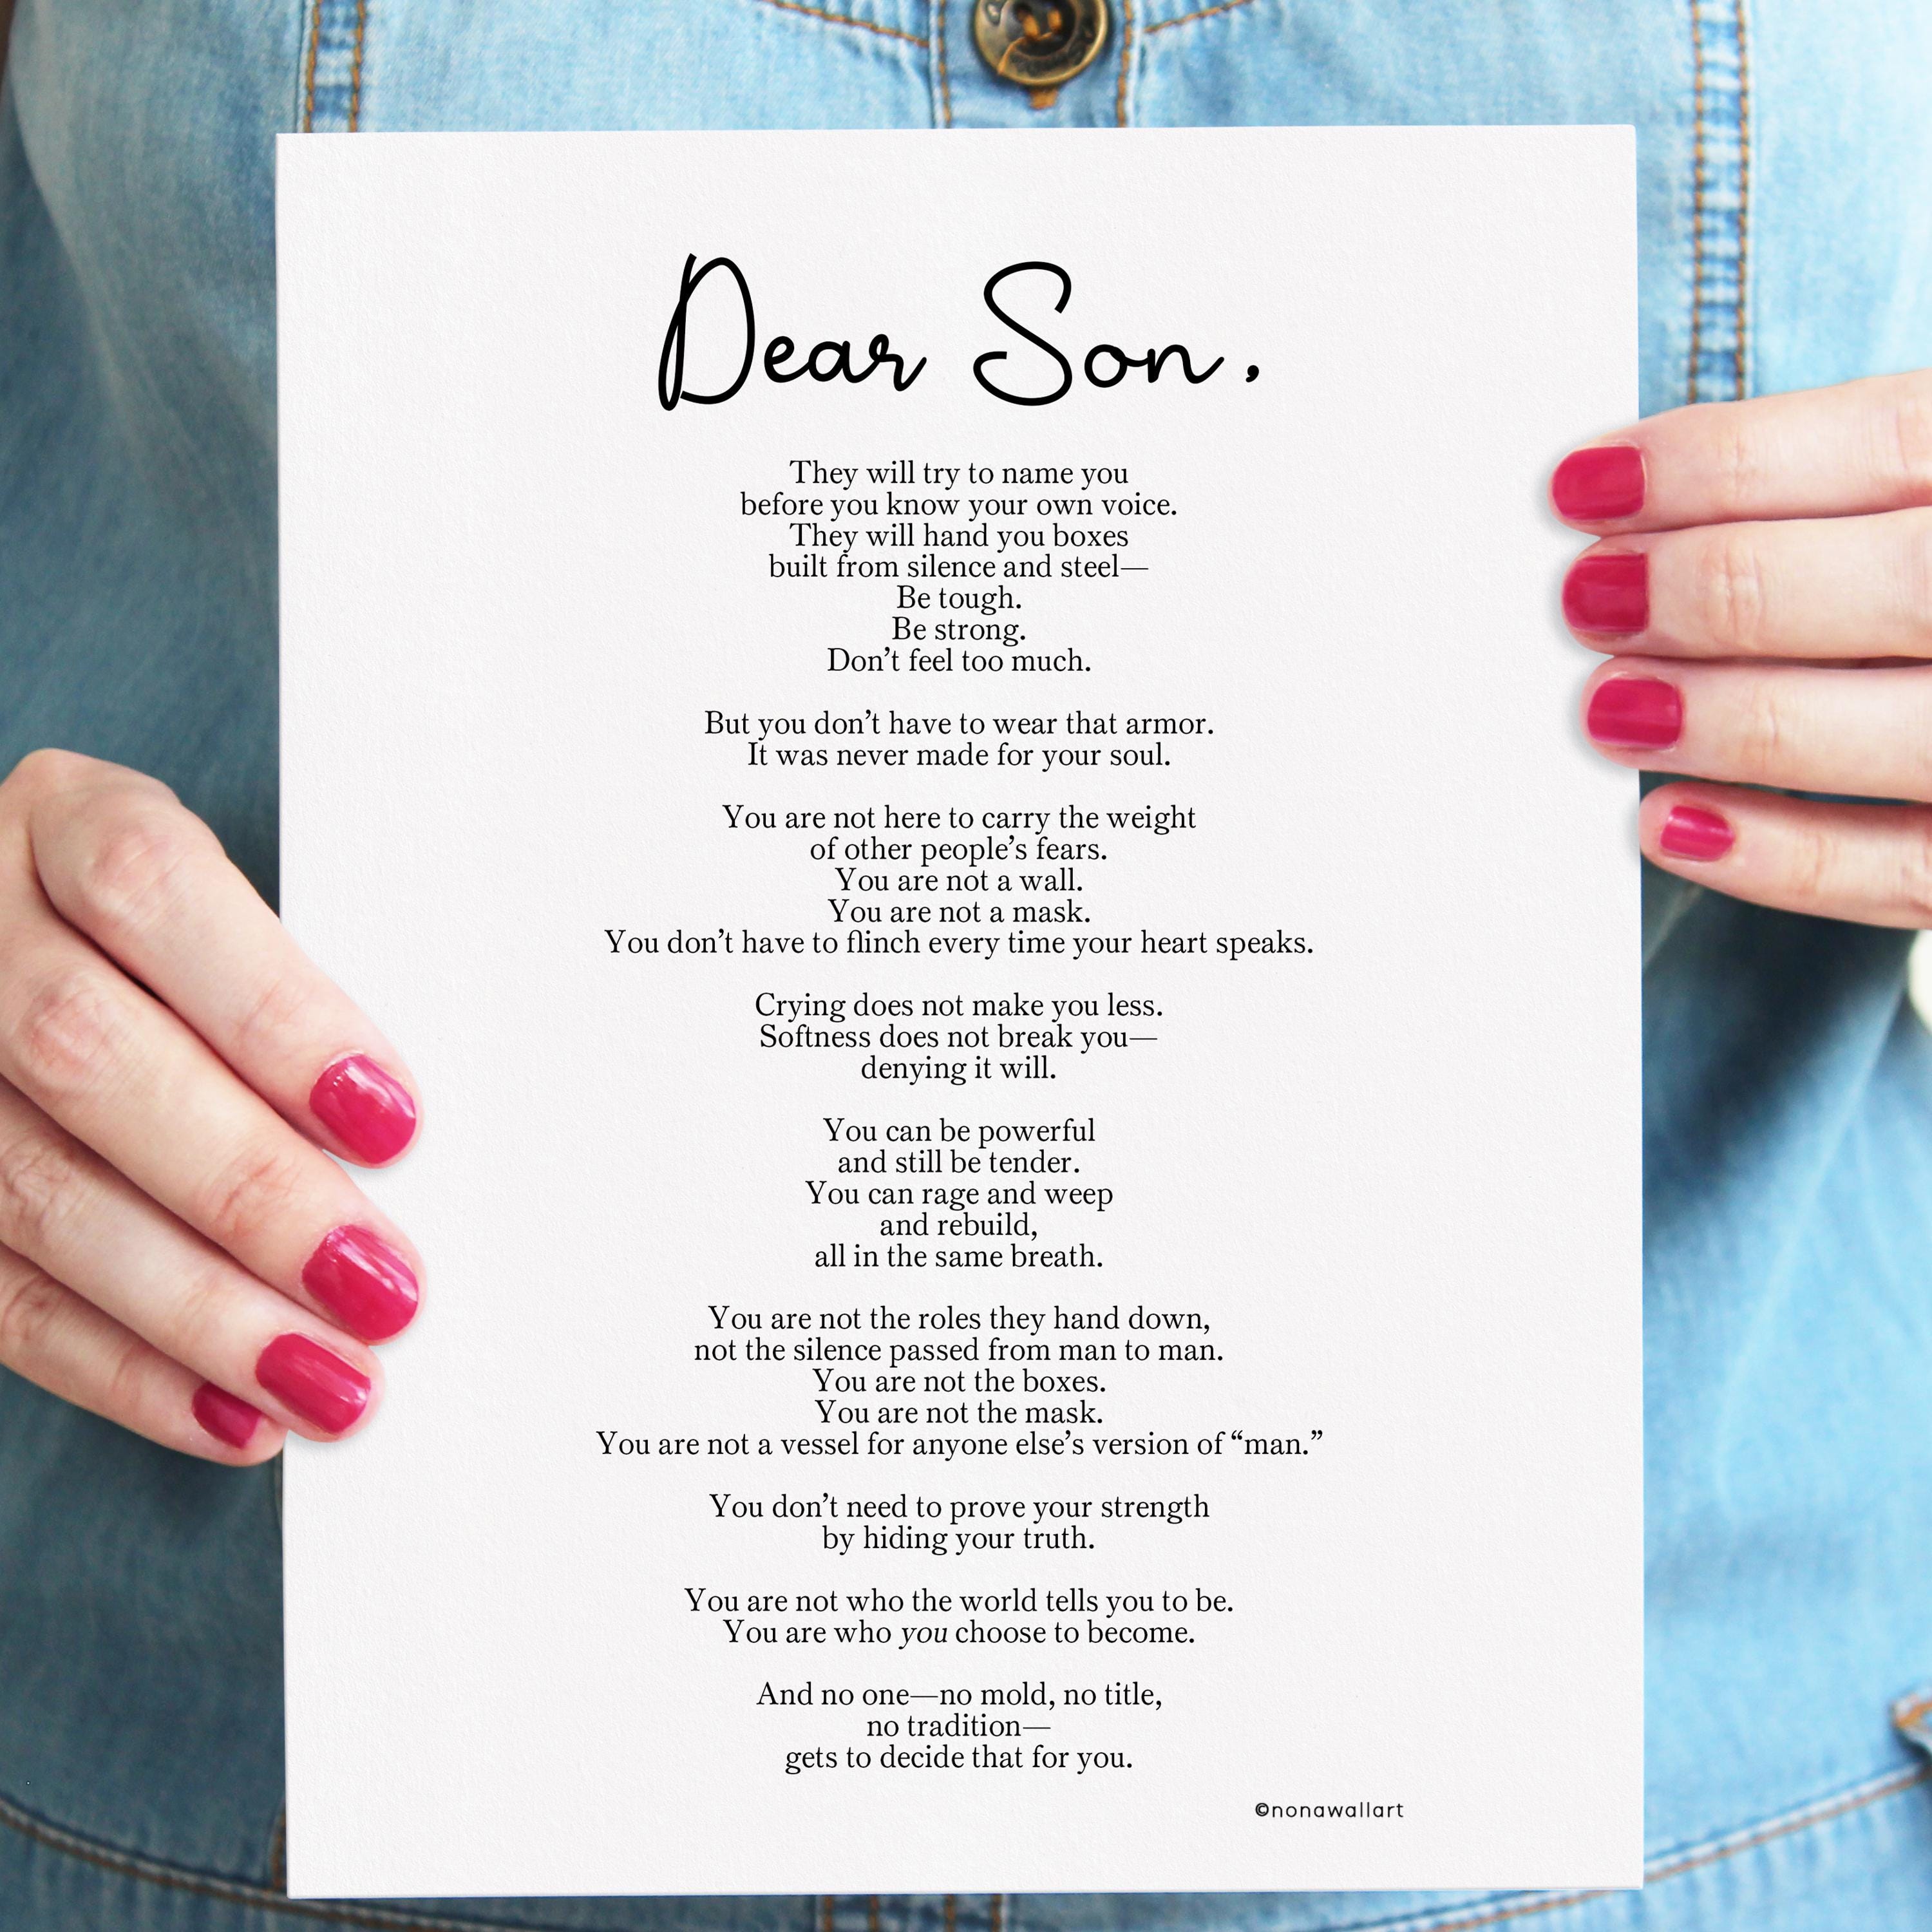 Dear Son,
They will try to name you
before you know your own voice.
They will hand you boxes
built from silence and steel—
Be tough.
Be strong.
Don’t feel too much.
But you don’t have to wear that armor.
It was never made for your soul.
You are not here to carry the weight
of other people’s fears.
You are not a wall.
You are not a mask.
You don’t have to flinch every time your heart speaks.
Crying does not make you less.
Softness does not break you—
denying it will.
You can be powerful
and still be tender.
You can rage and weep
and rebuild,
all in the same breath.
You are not the roles they hand down,
not the silence passed from man to man.
You are not the boxes.
You are not the mask.
You are not a vessel for anyone else’s version of “man.”
You don’t need to prove your strength
by hiding your truth.
You are not who the world tells you to be.
You are who you choose to become.
And no one—no mold, no title,
no tradition—
gets to decide that for you.
©nonawallart